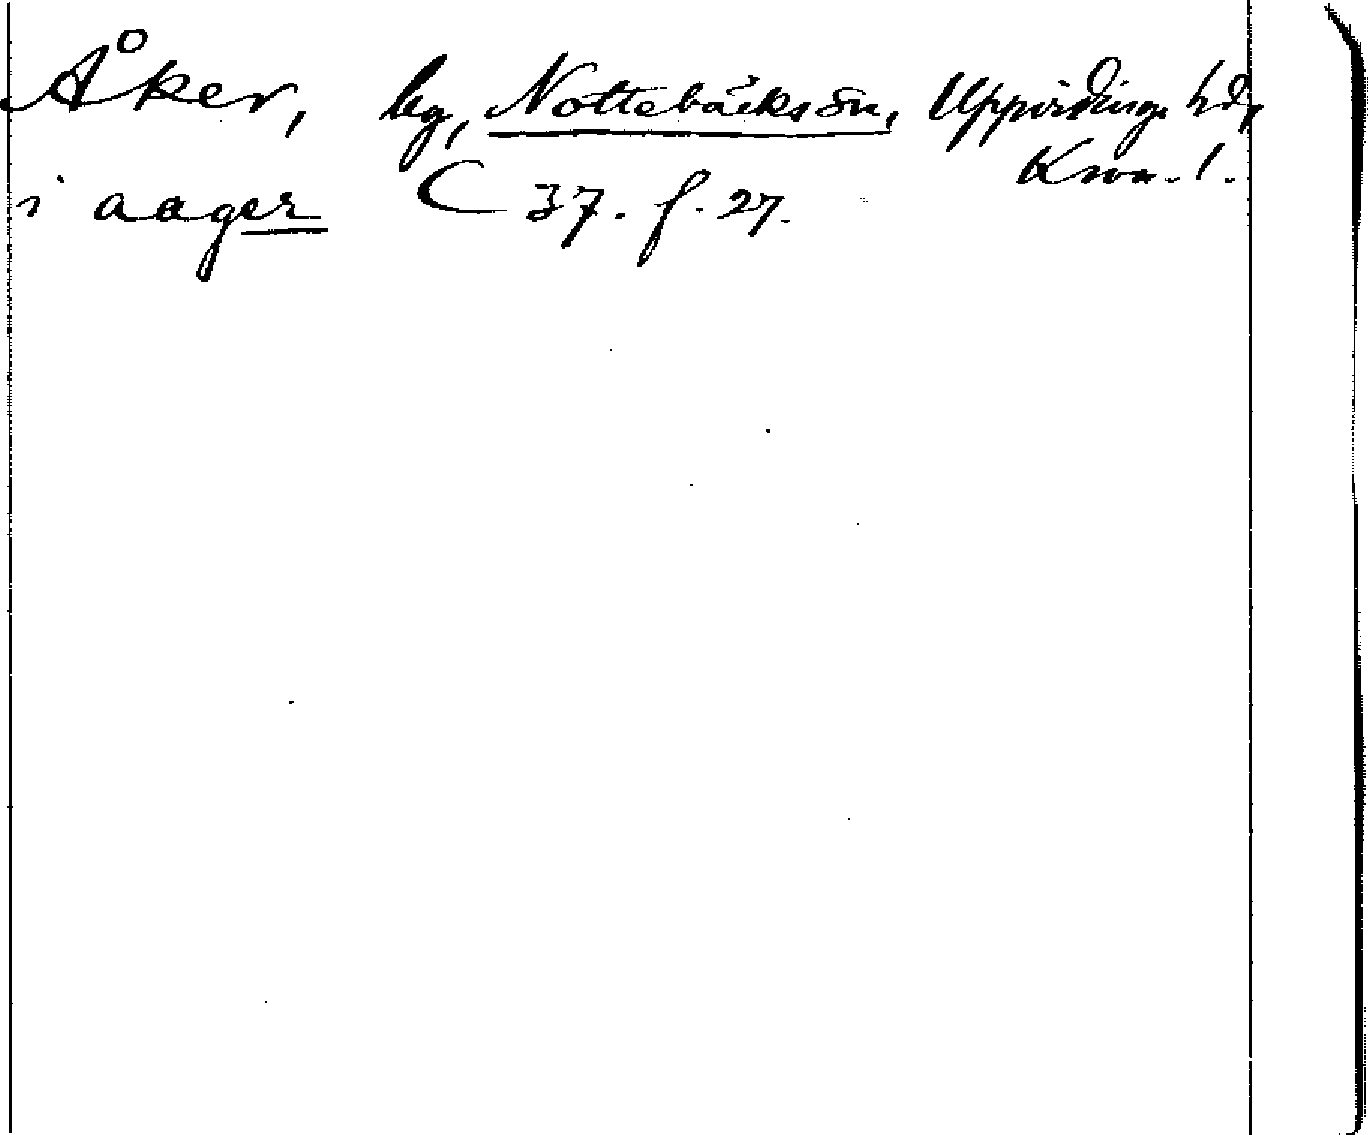 Åker, by, Nottebäcks sn, Uppvidinge hd,
Kron. l.
i aager C 37. f. 27.